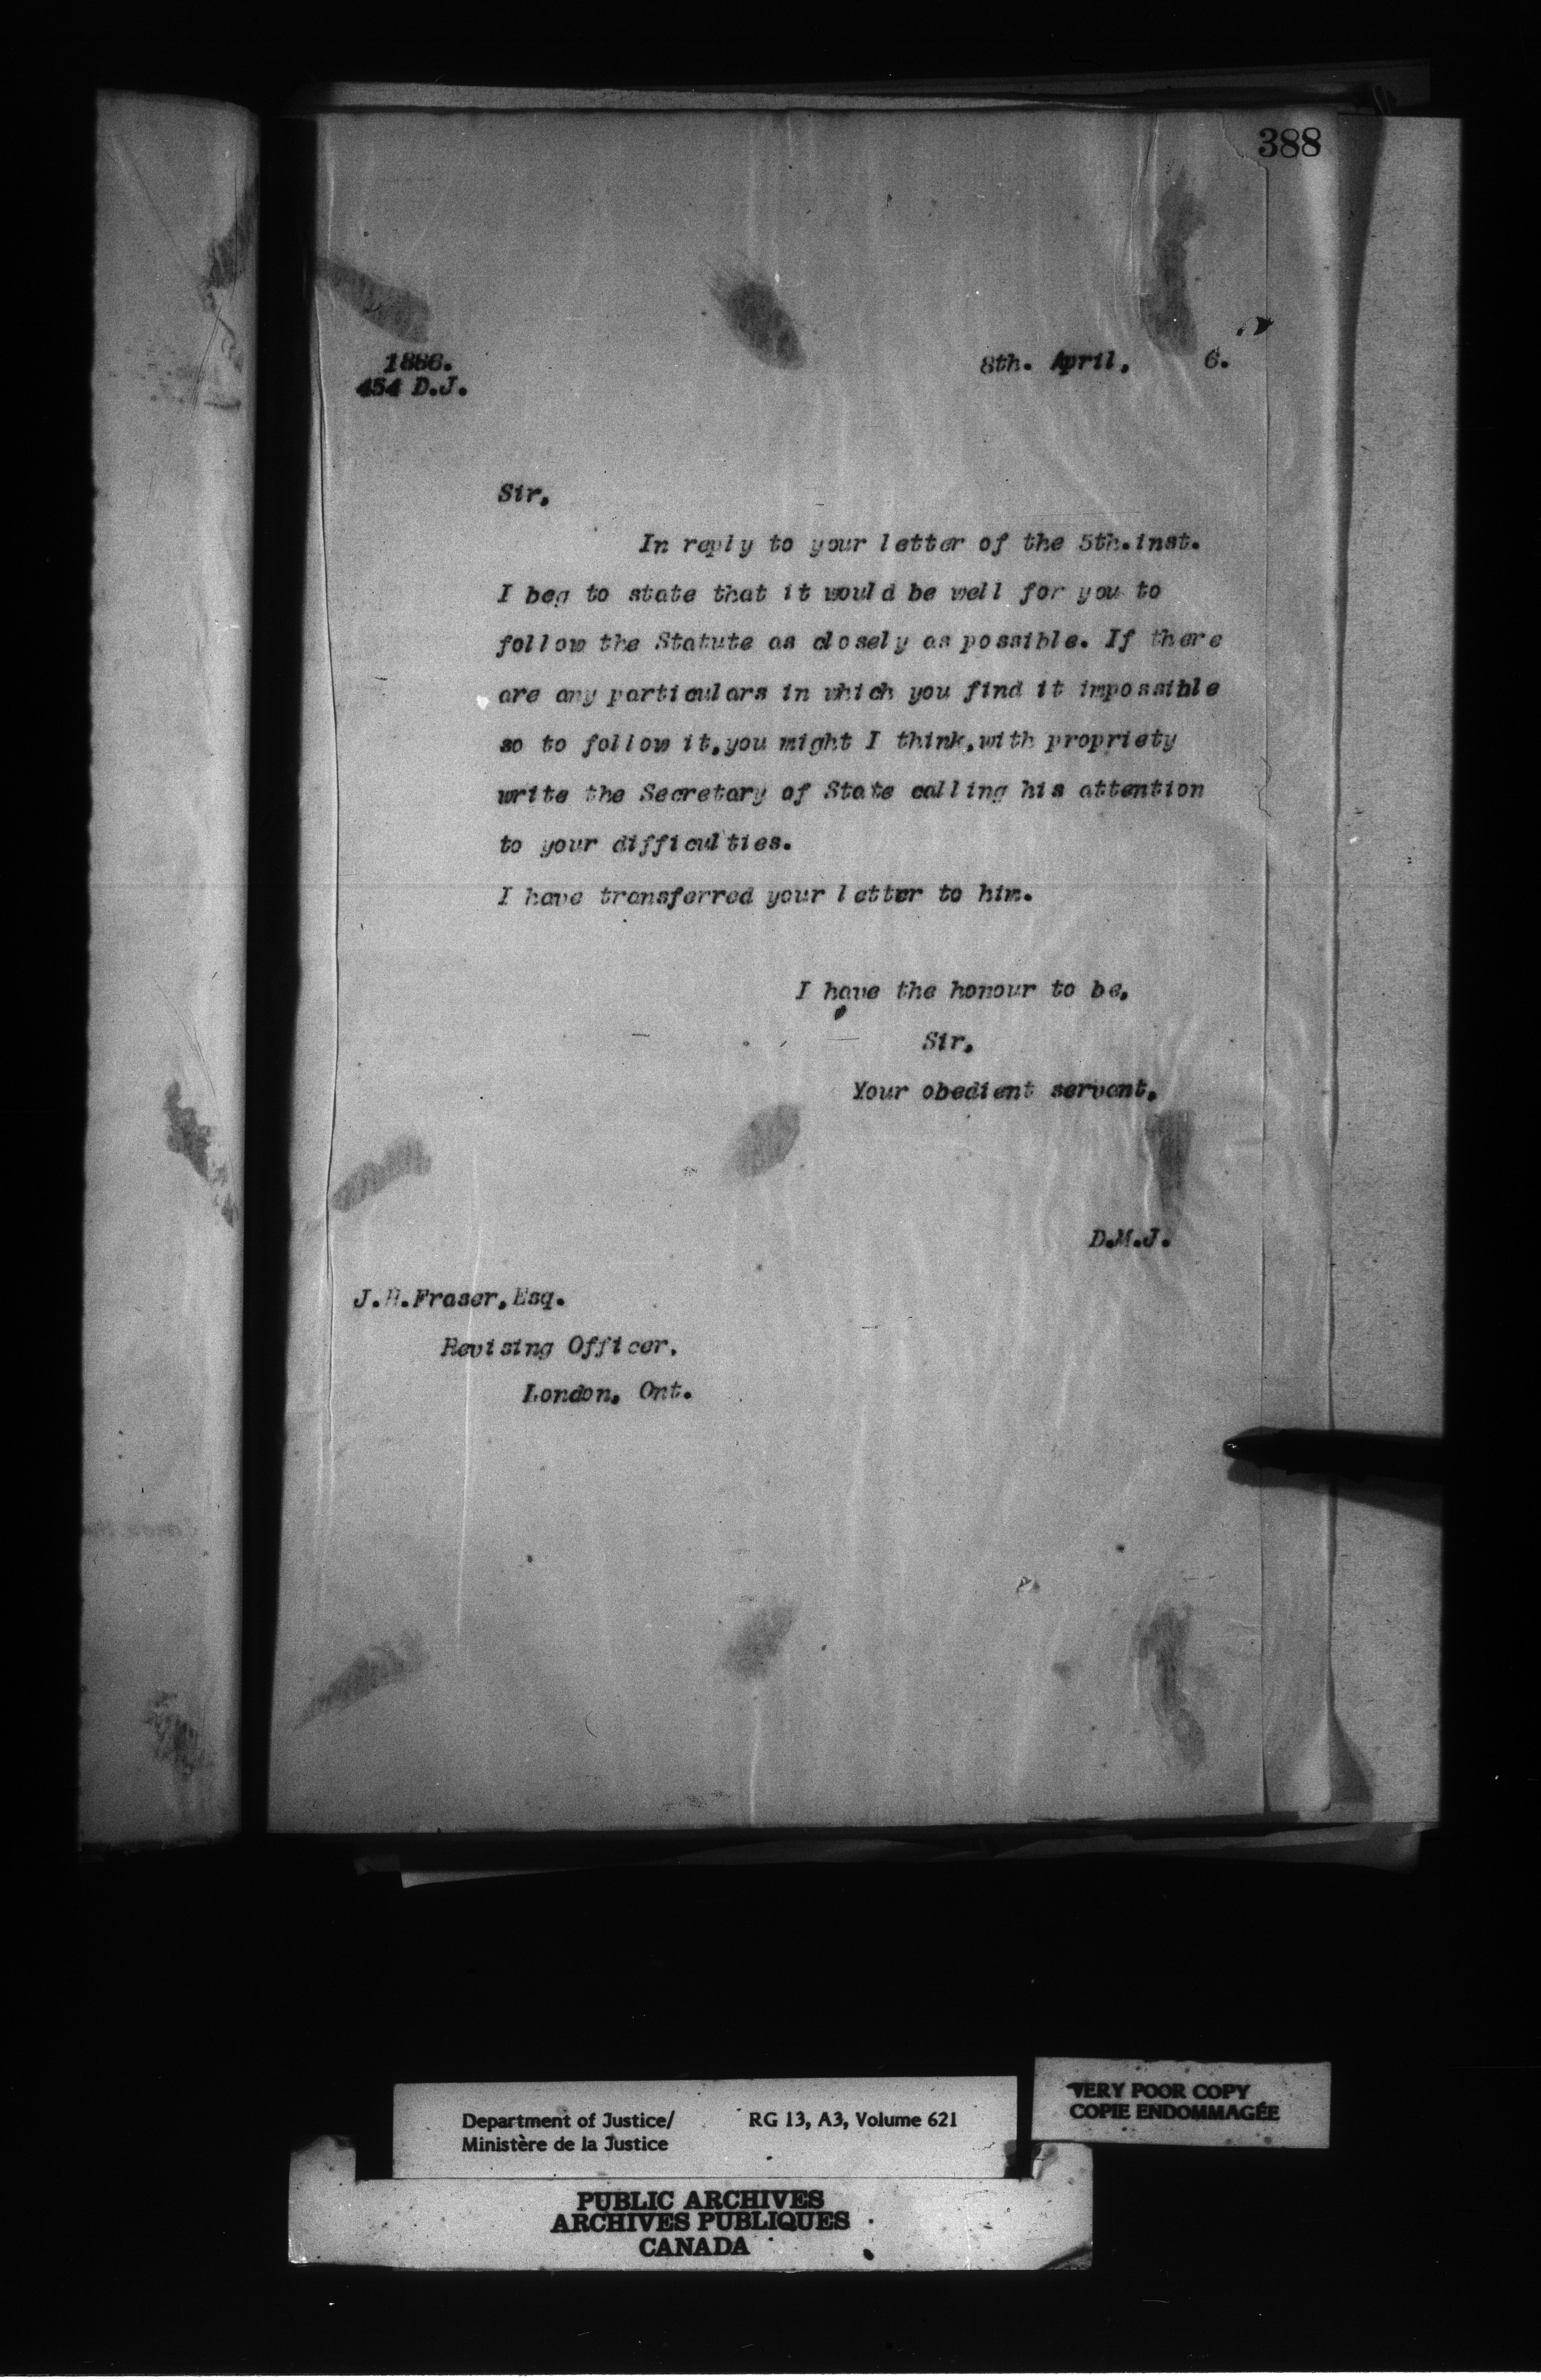 388
1886.
454 D.J.
8th. April, 6.
Sir,
In reply to your letter of the 5th.inst.
I beg to state that it would be well for you to
follow the Statute as closely as possible. If there
are any particulars in which you find it impossible
so to follow it,you might I think,with propriety
write the Secretary of State calling his attention
to your difficulties.
I have transferred your letter to him.
I have the honour to be,
Sir,
Your obedient servant,
D.M.J.
J.H.Fraser,Esq.
Revising Officer,
London, Ont.
VERY POOR COPY
COPIE ENDOMMAGÉE
Department of Justice/ RG 13, A3, Volume 621
Ministère de la Justice
PUBLIC ARCHIVES
ARCHIVES PUBLIQUES
CANADA